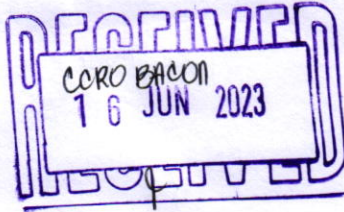 RECEIVED
CCRO BACON
16 JUN 2023